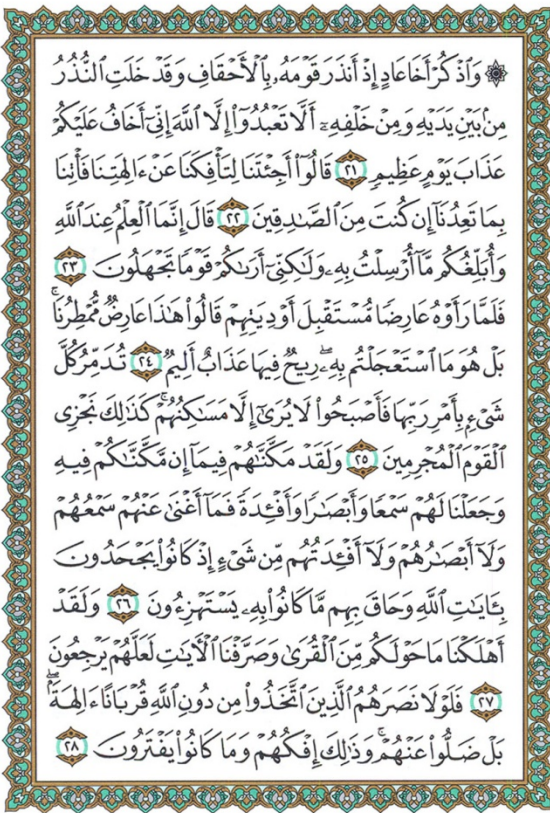 ۞ وَٱذْكُرْ أَخَا عَادٍ إِذْ أَنذَرَ قَوْمَهُۥ بِٱلْأَحْقَافِ وَقَدْ خَلَتِ ٱلنُّذُرُ
مِنۢ بَيْنِ يَدَيْهِ وَمِنْ خَلْفِهِۦٓ أَلَّا تَعْبُدُوٓا۟ إِلَّا ٱللَّهَ إِنِّىٓ أَخَافُ عَلَيْكُمْ
عَذَابَ يَوْمٍ عَظِيمٍ ٢١ قَالُوٓا۟ أَجِئْتَنَا لِتَأْفِكَنَا عَنْ ءَالِهَتِنَا فَأْتِنَا
بِمَا تَعِدُنَآ إِن كُنتَ مِنَ ٱلصَّـٰدِقِينَ ٢٢ قَالَ إِنَّمَا ٱلْعِلْمُ عِندَ ٱللَّهِ
وَأُبَلِّغُكُم مَّآ أُرْسِلْتُ بِهِۦ وَلَـٰكِنِّىٓ أَرَىٰكُمْ قَوْمًا تَجْهَلُونَ ٢٣
فَلَمَّا رَأَوْهُ عَارِضًا مُّسْتَقْبِلَ أَوْدِيَتِهِمْ قَالُوا۟ هَـٰذَا عَارِضٌ مُّمْطِرُنَا ۚ
بَلْ هُوَ مَا ٱسْتَعْجَلْتُم بِهِۦ ۖ رِيحٌ فِيهَا عَذَابٌ أَلِيمٌ ٢٤ تُدَمِّرُ كُلَّ
شَىْءٍۭ بِأَمْرِ رَبِّهَا فَأَصْبَحُوا۟ لَا يُرَىٰٓ إِلَّا مَسَـٰكِنُهُمْ ۚ كَذَٰلِكَ نَجْزِى
ٱلْقَوْمَ ٱلْمُجْرِمِينَ ٢٥ وَلَقَدْ مَكَّنَّـٰهُمْ فِيمَآ إِن مَّكَّنَّـٰكُمْ فِيهِ
وَجَعَلْنَا لَهُمْ سَمْعًا وَأَبْصَـٰرًا وَأَفْـِٔدَةً فَمَآ أَغْنَىٰ عَنْهُمْ سَمْعُهُمْ
وَلَآ أَبْصَـٰرُهُمْ وَلَآ أَفْـِٔدَتُهُم مِّن شَىْءٍ إِذْ كَانُوا۟ يَجْحَدُونَ
بِـَٔايَـٰتِ ٱللَّهِ وَحَاقَ بِهِم مَّا كَانُوا۟ بِهِۦ يَسْتَهْزِءُونَ ٢٦ وَلَقَدْ
أَهْلَكْنَا مَا حَوْلَكُم مِّنَ ٱلْقُرَىٰ وَصَرَّفْنَا ٱلْـَٔايَـٰتِ لَعَلَّهُمْ يَرْجِعُونَ
٢٧ فَلَوْلَا نَصَرَهُمُ ٱلَّذِينَ ٱتَّخَذُوا۟ مِن دُونِ ٱللَّهِ قُرْبَانًا ءَالِهَةًۢ ۖ
بَلْ ضَلُّوا۟ عَنْهُمْ ۚ وَذَٰلِكَ إِفْكُهُمْ وَمَا كَانُوا۟ يَفْتَرُونَ ٢٨